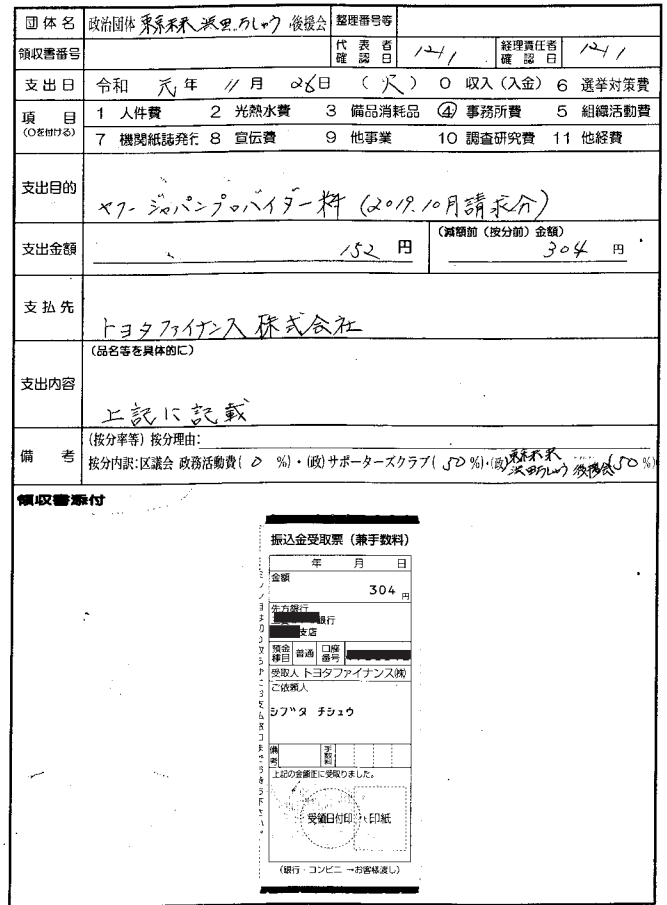 団体名 政治団体 東京未来 後援会 整理番号等
領収書番号 代表者確認日 12/1 経理責任者確認日 12/1
支出日 令和 元年 11月 26日 (火) 0 収入(入金) 6 選挙対策費
項目 (○を付ける) 1 人件費 2 光熱水費 3 備品消耗品 ④ 事務所費 5 組織活動費
7 機関紙誌発行 8 宣伝費 9 他事業 10 調査研究費 11 他経費
支出目的 ヤフージャパンプロバイダー料 (2019.10月請求分)
支出金額 152 円 (減額前(按分前)金額) 304 円
支払先 トヨタファイナンス株式会社
(品名等を具体的に)
支出内容 上記に記載
(按分率等) 按分理由:
備考 按分内訳:区議会 政務活動費( 0 %)・(政)サポーターズクラブ( 50 %)・(政) 東京未来 後援会 (50 %)
領収書添付
振込金受取票(兼手数料)
年 月 日
金額
304 円
先方銀行
銀行
支店
預金種目 普通 口座番号
受取人 トヨタファイナンス㈱
ご依頼人
シブタ チシュウ
備考 手数料
上記の金額正に受取りました。
受領日付印 印紙
(銀行・コンビニ→お客様渡し)